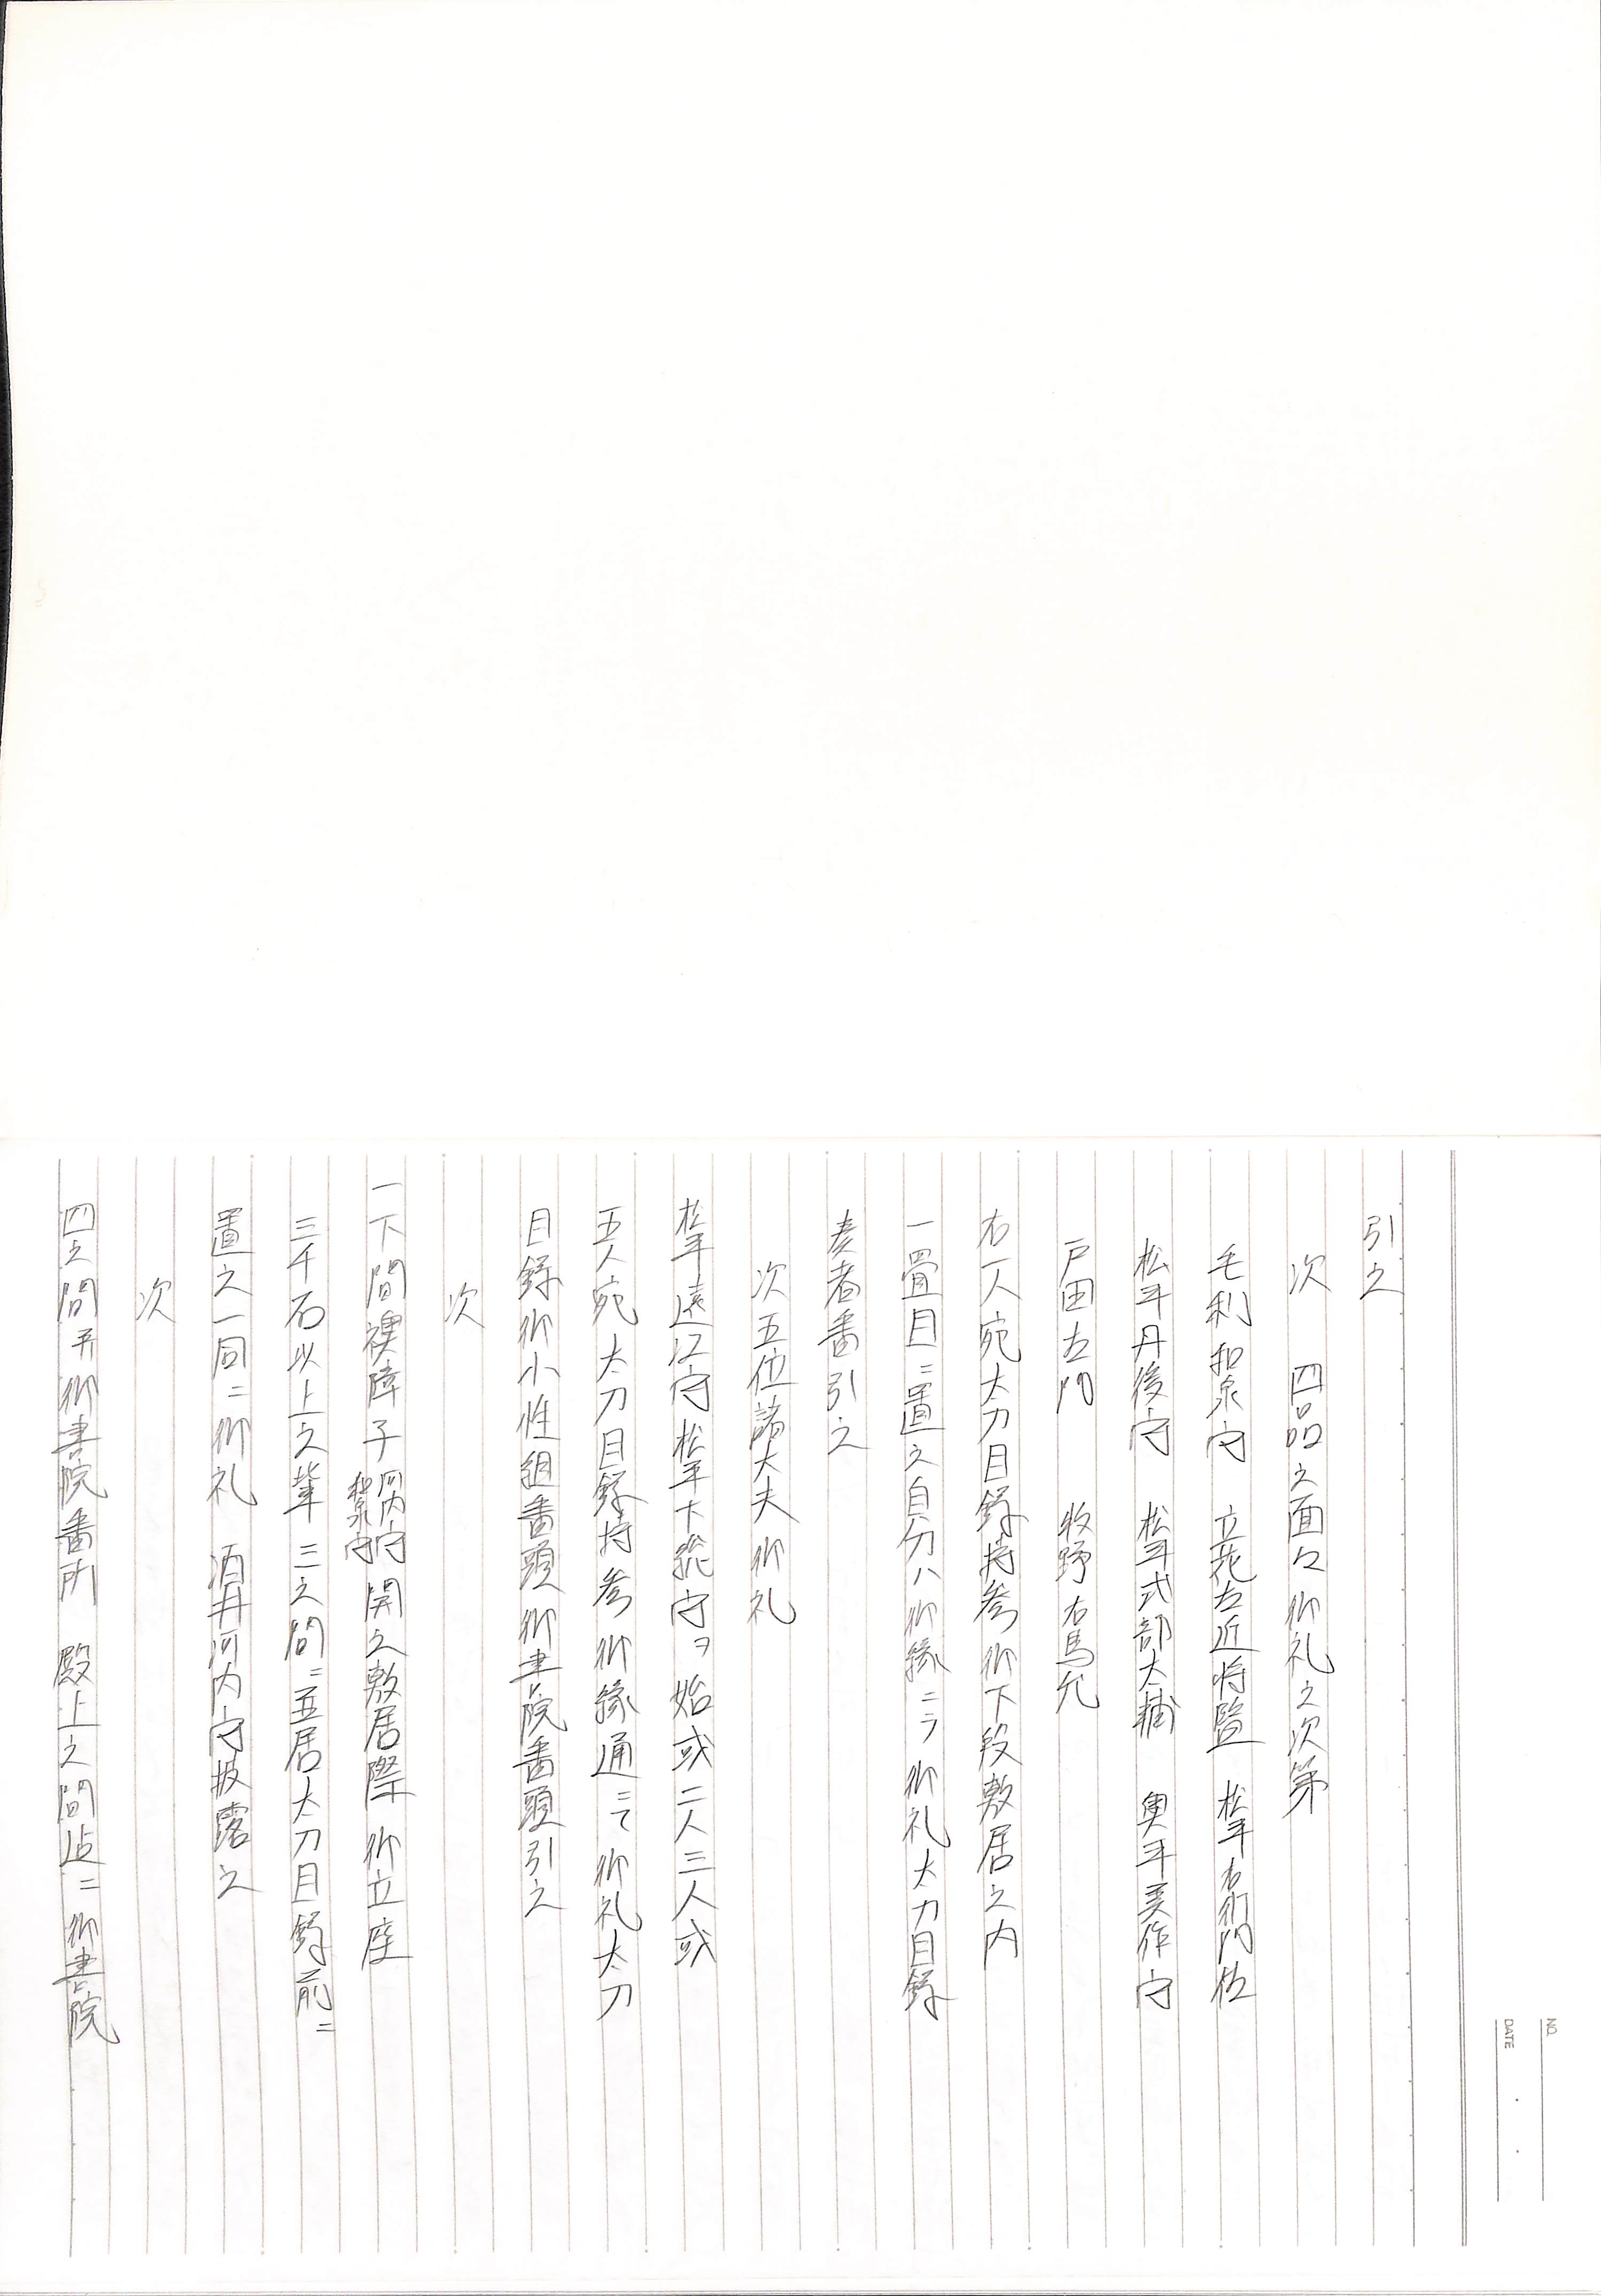 引之
次 四品之面々御礼之次第
毛利和泉守 立花左近将監 松平右衛門佐
松平丹後守 松平式部大輔 奥平美作守
戸田左門 牧野右馬允
右一人宛太刀目録持参御下段敷居之内
一畳目ニ置之自分ハ御縁ニテ御礼太刀目録
奏者番引之
次五位諸大夫御礼
松平遠江守松平下総守ヲ始或二人三人或
五人宛太刀目録持参御縁通ニて御礼太刀
目録御小性組番頭御書院番頭引之
次
一下間襖障子河内守和泉守開之敷居際御立座
三千石以上之輩三之間ニ並居太刀目録前ニ
置之一同ニ御礼 酒井河内守披露之
次
四之間并御書院番所 殿上之間迠ニ御書院
NO.
DATE